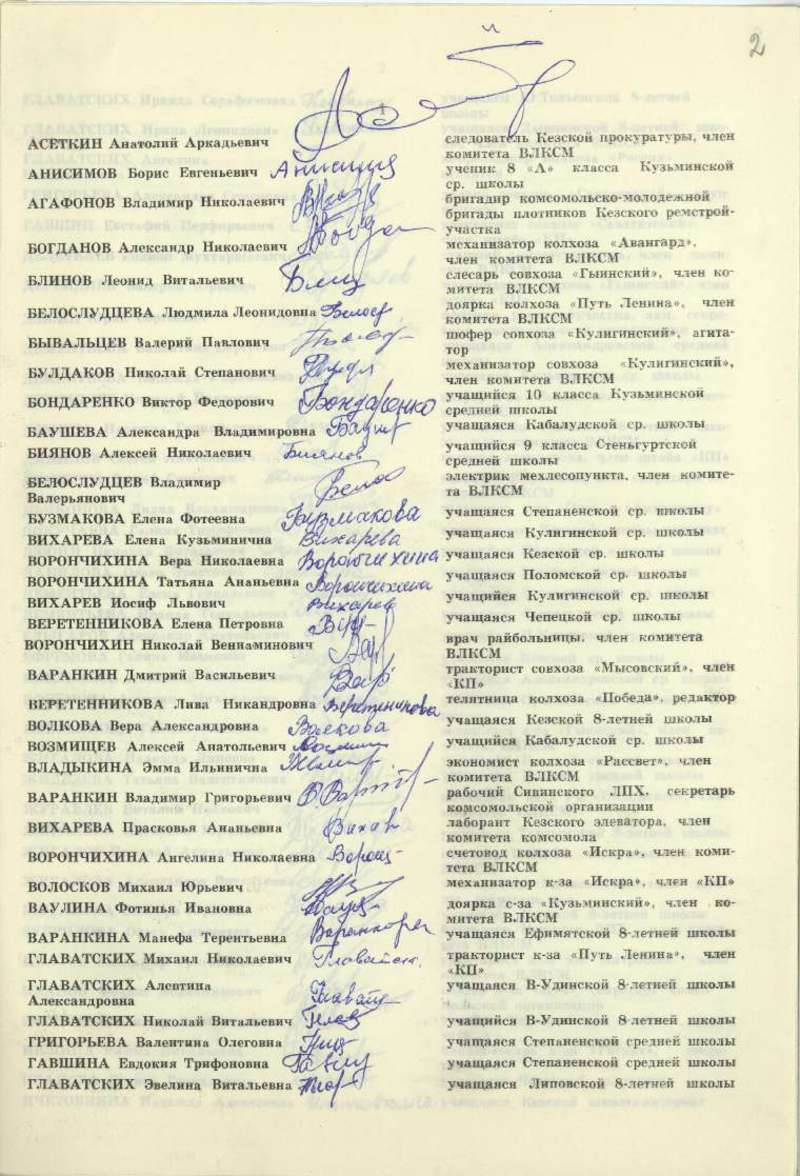 2
АСЕТКИН Анатолий Аркадьевич следователь Кезской прокуратуры, член
комитета ВЛКСМ
АНИСИМОВ Борис Евгеньевич Анисимов ученик 8 «А» класса Кузьминской
ср. школы
АГАФОНОВ Владимир Николаевич бригадир комсомольско-молодежной
бригады плотников Кезского ремстрой-
участка
БОГДАНОВ Александр Николаевич механизатор колхоза «Авангард»,
член комитета ВЛКСМ
БЛИНОВ Леонид Витальевич слесарь совхоза «Гыинский», член ко-
митета ВЛКСМ
БЕЛОСЛУДЦЕВА Людмила Леонидовна доярка колхоза «Путь Ленина», член
комитета ВЛКСМ
БЫВАЛЬЦЕВ Валерий Павлович шофер совхоза «Кулигинский», агита-
тор
БУЛДАКОВ Николай Степанович механизатор совхоза «Кулигинский»,
член комитета ВЛКСМ
БОНДАРЕНКО Виктор Федорович Бондаренко учащийся 10 класса Кузьминской
средней школы
БАУШЕВА Александра Владимировна учащаяся Кабалудской ср. школы
БИЯНОВ Алексей Николаевич Биянов учащийся 9 класса Стеньгуртской
средней школы
БЕЛОСЛУДЦЕВ Владимир электрик мехлесопункта, член комите-
Валерьянович та ВЛКСМ
БУЗМАКОВА Елена Фотеевна Бузмакова учащаяся Степаненской ср. школы
ВИХАРЕВА Елена Кузьминична Вихарева учащаяся Кулигинской ср. школы
ВОРОНЧИХИНА Вера Николаевна Ворончихина учащаяся Кезской ср. школы
ВОРОНЧИХИНА Татьяна Ананьевна Ворончихина учащаяся Поломской ср. школы
ВИХАРЕВ Иосиф Львович Вихарев учащийся Кулигинской ср. школы
ВЕРЕТЕННИКОВА Елена Петровна учащаяся Чепецкой ср. школы
ВОРОНЧИХИН Николай Вениаминович врач райбольницы, член комитета
ВЛКСМ
ВАРАНКИН Дмитрий Васильевич тракторист совхоза «Мысовский», член
«КП»
ВЕРЕТЕННИКОВА Лива Никандровна Веретенникова телятница колхоза «Победа», редактор
ВОЛКОВА Вера Александровна Волкова учащаяся Кезской 8-летней школы
ВОЗМИЩЕВ Алексей Анатольевич учащийся Кабалудской ср. школы
ВЛАДЫКИНА Эмма Ильинична экономист колхоза «Рассвет», член
комитета ВЛКСМ
ВАРАНКИН Владимир Григорьевич рабочий Сивинского ЛПХ, секретарь
комсомольской организации
ВИХАРЕВА Прасковья Ананьевна лаборант Кезского элеватора, член
комитета комсомола
ВОРОНЧИХИНА Ангелина Николаевна счетовод колхоза «Искра», член коми-
тета ВЛКСМ
ВОЛОСКОВ Михаил Юрьевич механизатор к-за «Искра», член «КП»
ВАУЛИНА Фотинья Ивановна доярка с-за «Кузьминский», член ко-
митета ВЛКСМ
ВАРАНКИНА Манефа Терентьевна учащаяся Ефимятской 8-летней школы
ГЛАВАТСКИХ Михаил Николаевич тракторист к-за «Путь Ленина», член
«КП»
ГЛАВАТСКИХ Алевтина учащаяся В-Удинской 8-летней школы
Александровна
ГЛАВАТСКИХ Николай Витальевич учащийся В-Удинской 8-летней школы
ГРИГОРЬЕВА Валентина Олеговна учащаяся Степаненской средней школы
ГАВШИНА Евдокия Трифоновна учащаяся Степаненской средней школы
ГЛАВАТСКИХ Эвелина Витальевна учащаяся Липовской 8-летней школы